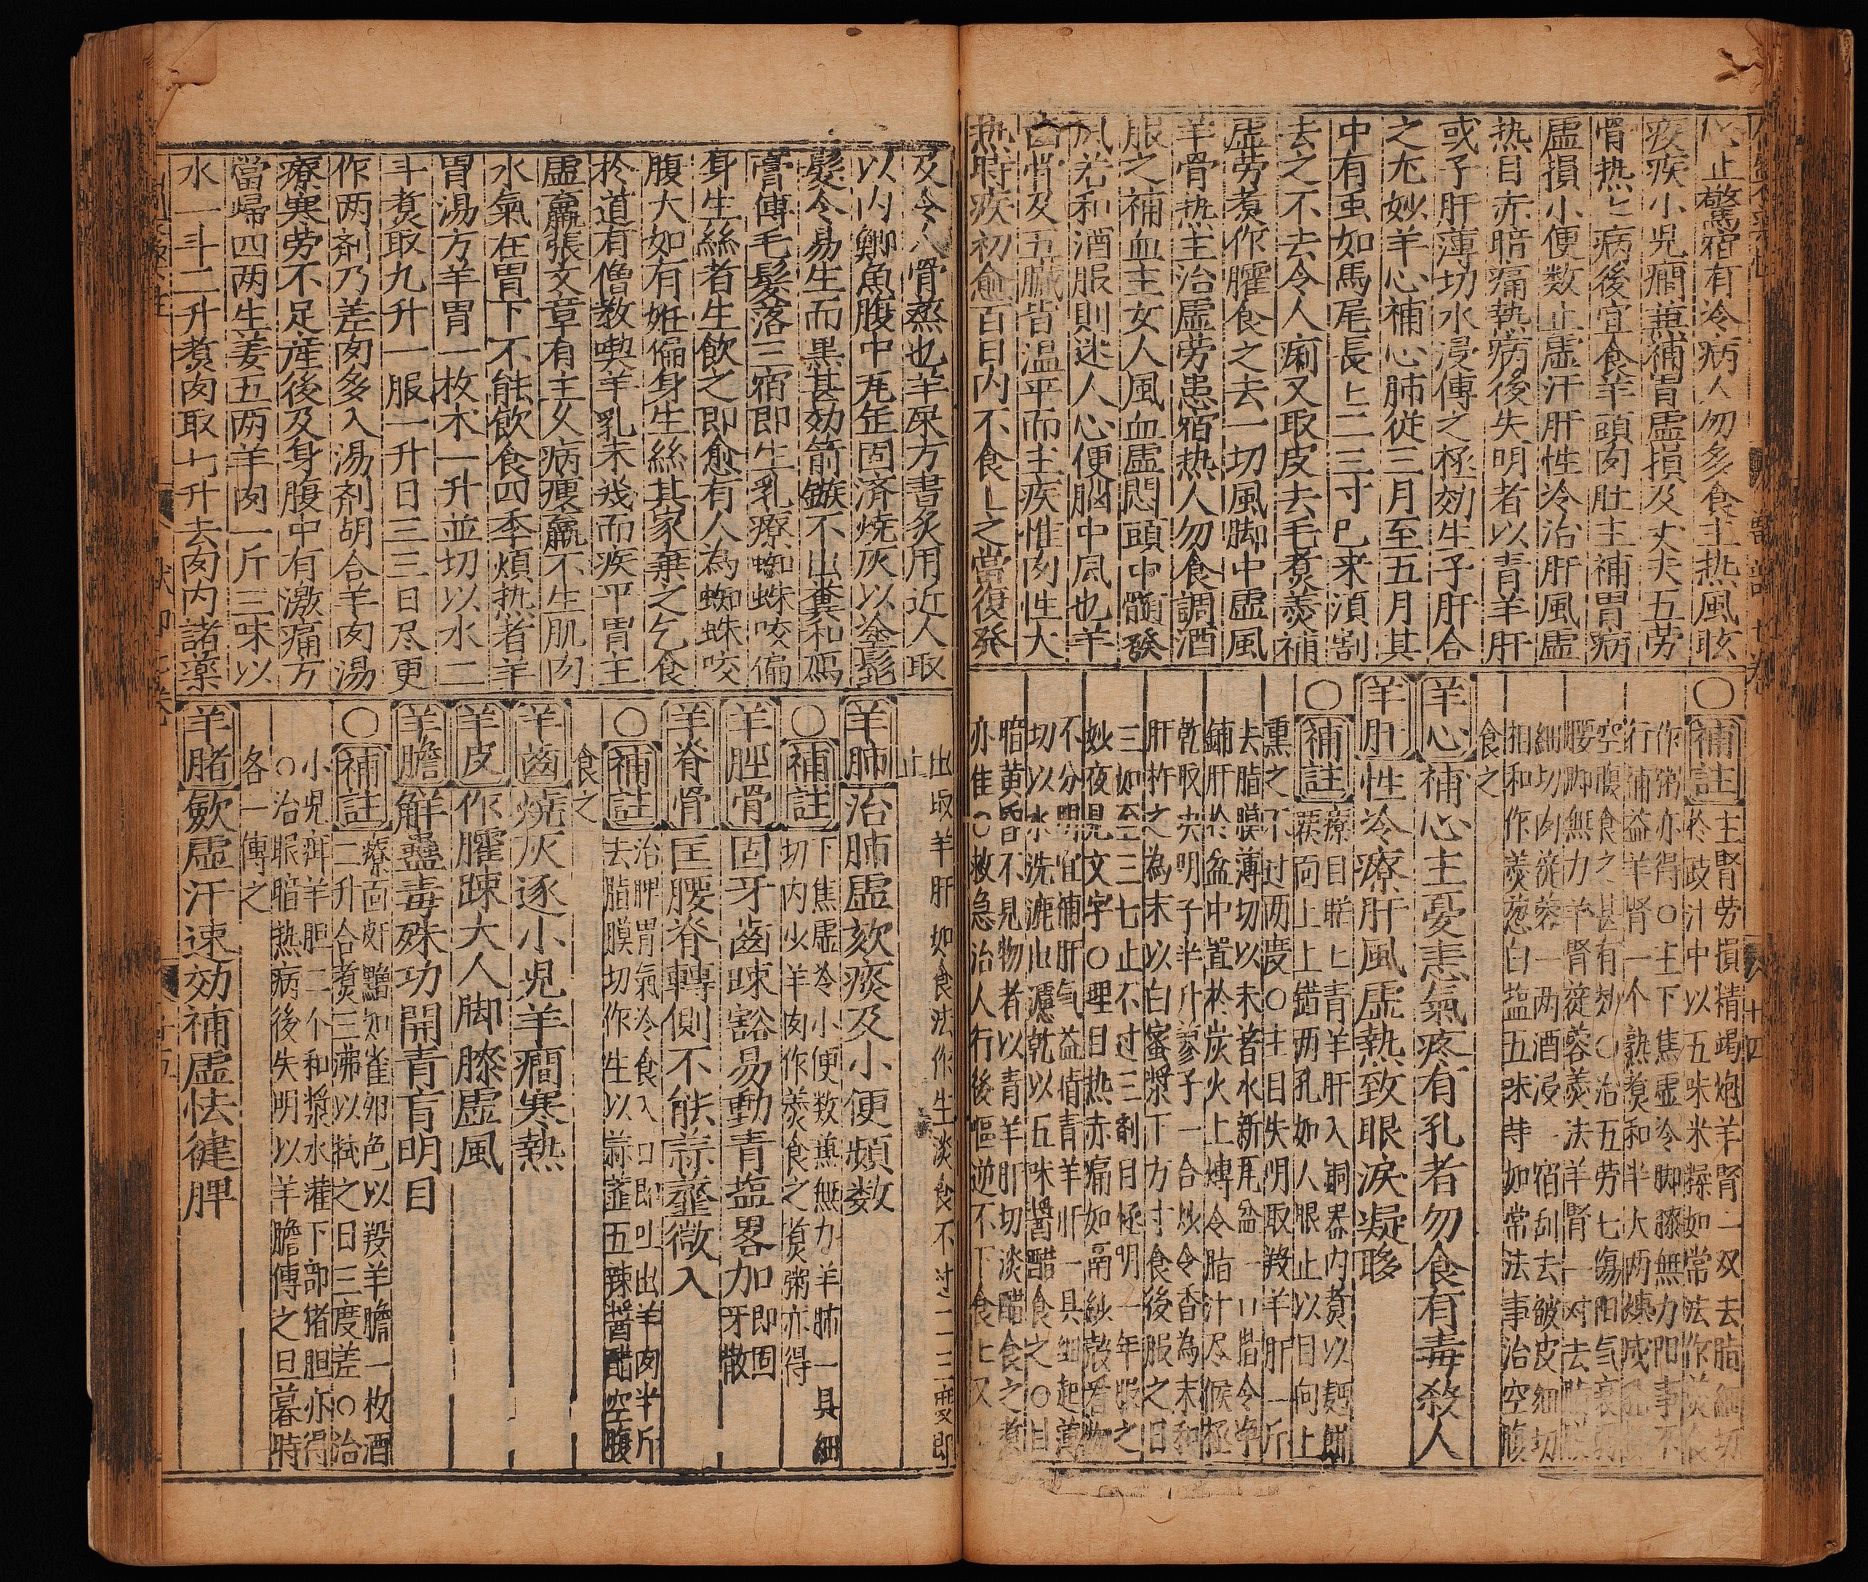 心止驚宿有冷病人勿多食主热風眩
疫疾小児癇兼補胃虛損及丈夫五劳
骨热匕病後宜食羊頭肉肚主補胃病
虛損小便数止虛汗肝性冷治肝風虛
热目赤暗痛热病後失明者以青羊肝
或子肝薄切水浸傅之極効生子肝合
之尤妙羊心補心肺從三月至五月其
中有虫如馬尾長匕二三寸已来湏割
去之不去令人痢又取皮去毛煑羮補
虛劳煑作臛食之去一切風脚中虛風
羊骨热主治虛劳患宿热人勿食調酒
服之補血主女人風血虛悶頭中髓發
風若和酒服則迷人心便脳中風也羊
肉骨及五臟皆温平而主疾惟肉性大
热時疾初愈百日内不食匕之當復發
○補註
主腎劳損精竭炮羊腎二双去脂細切
於豉汁中以五味米糅如常法作羮食
作粥亦得○主下焦虛冷脚膝無力陽事不
行補益羊腎一个熟煑和半大两煉成乳
空腹食之甚有効○治五劳七傷阳气衰弱
腰脚無力羊腎蓯蓉羮法羊腎一对去脂膜
細切肉蓯蓉一两酒浸一宿刮去皴皮細切
相和作羮葱白盐五味等如常法事治空腹
食之
羊心補心主憂恚氣疼有孔者勿食有毒殺人
羊肝性冷療肝風虛熱致眼淚凝眵
○補註
療目䀮匕青羊肝入銅器内煑以麺餬
覆面上上錯两孔如人眼止以目向上
熏之不过两度○主目失明取羖羊肝一斤
去脂膜薄切以未着水新瓦盆一口揩令净
鋪肝於盆中置於炭火上煿令脂汁尽候極
乾取决明子半升蓼子一合炒令香為末和
肝杵之為末以白蜜漿下方寸食後服之日
三加至三七止不过三剤目極明一年服之
妙夜見文字○理目热赤痛如隔紗縠看物
不分明宜補肝气益睛青羊肝一具細起薄
切以水洗漉出瀝乾以五味醬醋食之○目
暗黃昏不見物者以青羊肝切淡醋食之煑
亦佳○救急治人行後嘔逆不下食匕又
及令人骨蒸也羊屎方書炙用近人取
以内鯽魚腹中瓦缶固济烧灰以塗髭
髮令易生而黒甚効箭鏃不出糞和鴈
膏傅毛髮落三宿即生乳療蜘蛛咬徧
身生絲者生飲之即愈有人為蜘蛛咬
腹大如有姙徧身生絲其家棄之乞食
於道有僧教喫羊乳未幾而疾平胃主
虛羸張文章有主久病瘦羸不生肌肉
水氣在胃下不能飲食四季煩热者羊
胃湯方羊胃一枚术一升並切以水二
斗煑取九升一服一升日三三日尽更
作两剤乃差肉多入湯剤胡合羊肉湯
療寒劳不足産後及身腹中有激痛方
當歸四两生姜五两羊肉一斤三味以
水一斗二升煑肉取七升去肉内諸藥
出取羊肝如食法作生淡食不过一二頓即
止
羊肺治肺虛欬痰及小便頻数
○補註
下焦虛冷小便数無力羊肺一具細
切内少羊肉作羮食之煑粥亦得
羊胫骨固牙齒踈豁易動青盐畧加即固牙散
羊脊骨医腰脊轉側不能蒜虀微入
○補註
治脾胃氣冷食入口即吐出羊肉半斤
去脂膜切作生以蒜虀五辣醬醋空腹
食之
羊齒燒灰逐小児羊癇寒熱
羊皮作臛踈大人脚膝虛風
羊膽觧蠱毒殊功開青盲明目
○補註
療面皯䵳如雀卵色以羖羊膽一枚酒
二升合煑三沸以拭之日三度差○治
小児疳羊胆二个和漿水灌下部猪胆亦得
○治眼暗热病後失明以羊膽傅之旦暮時
各一傅之
羊䐗斂虛汗速効補虛怯健脾